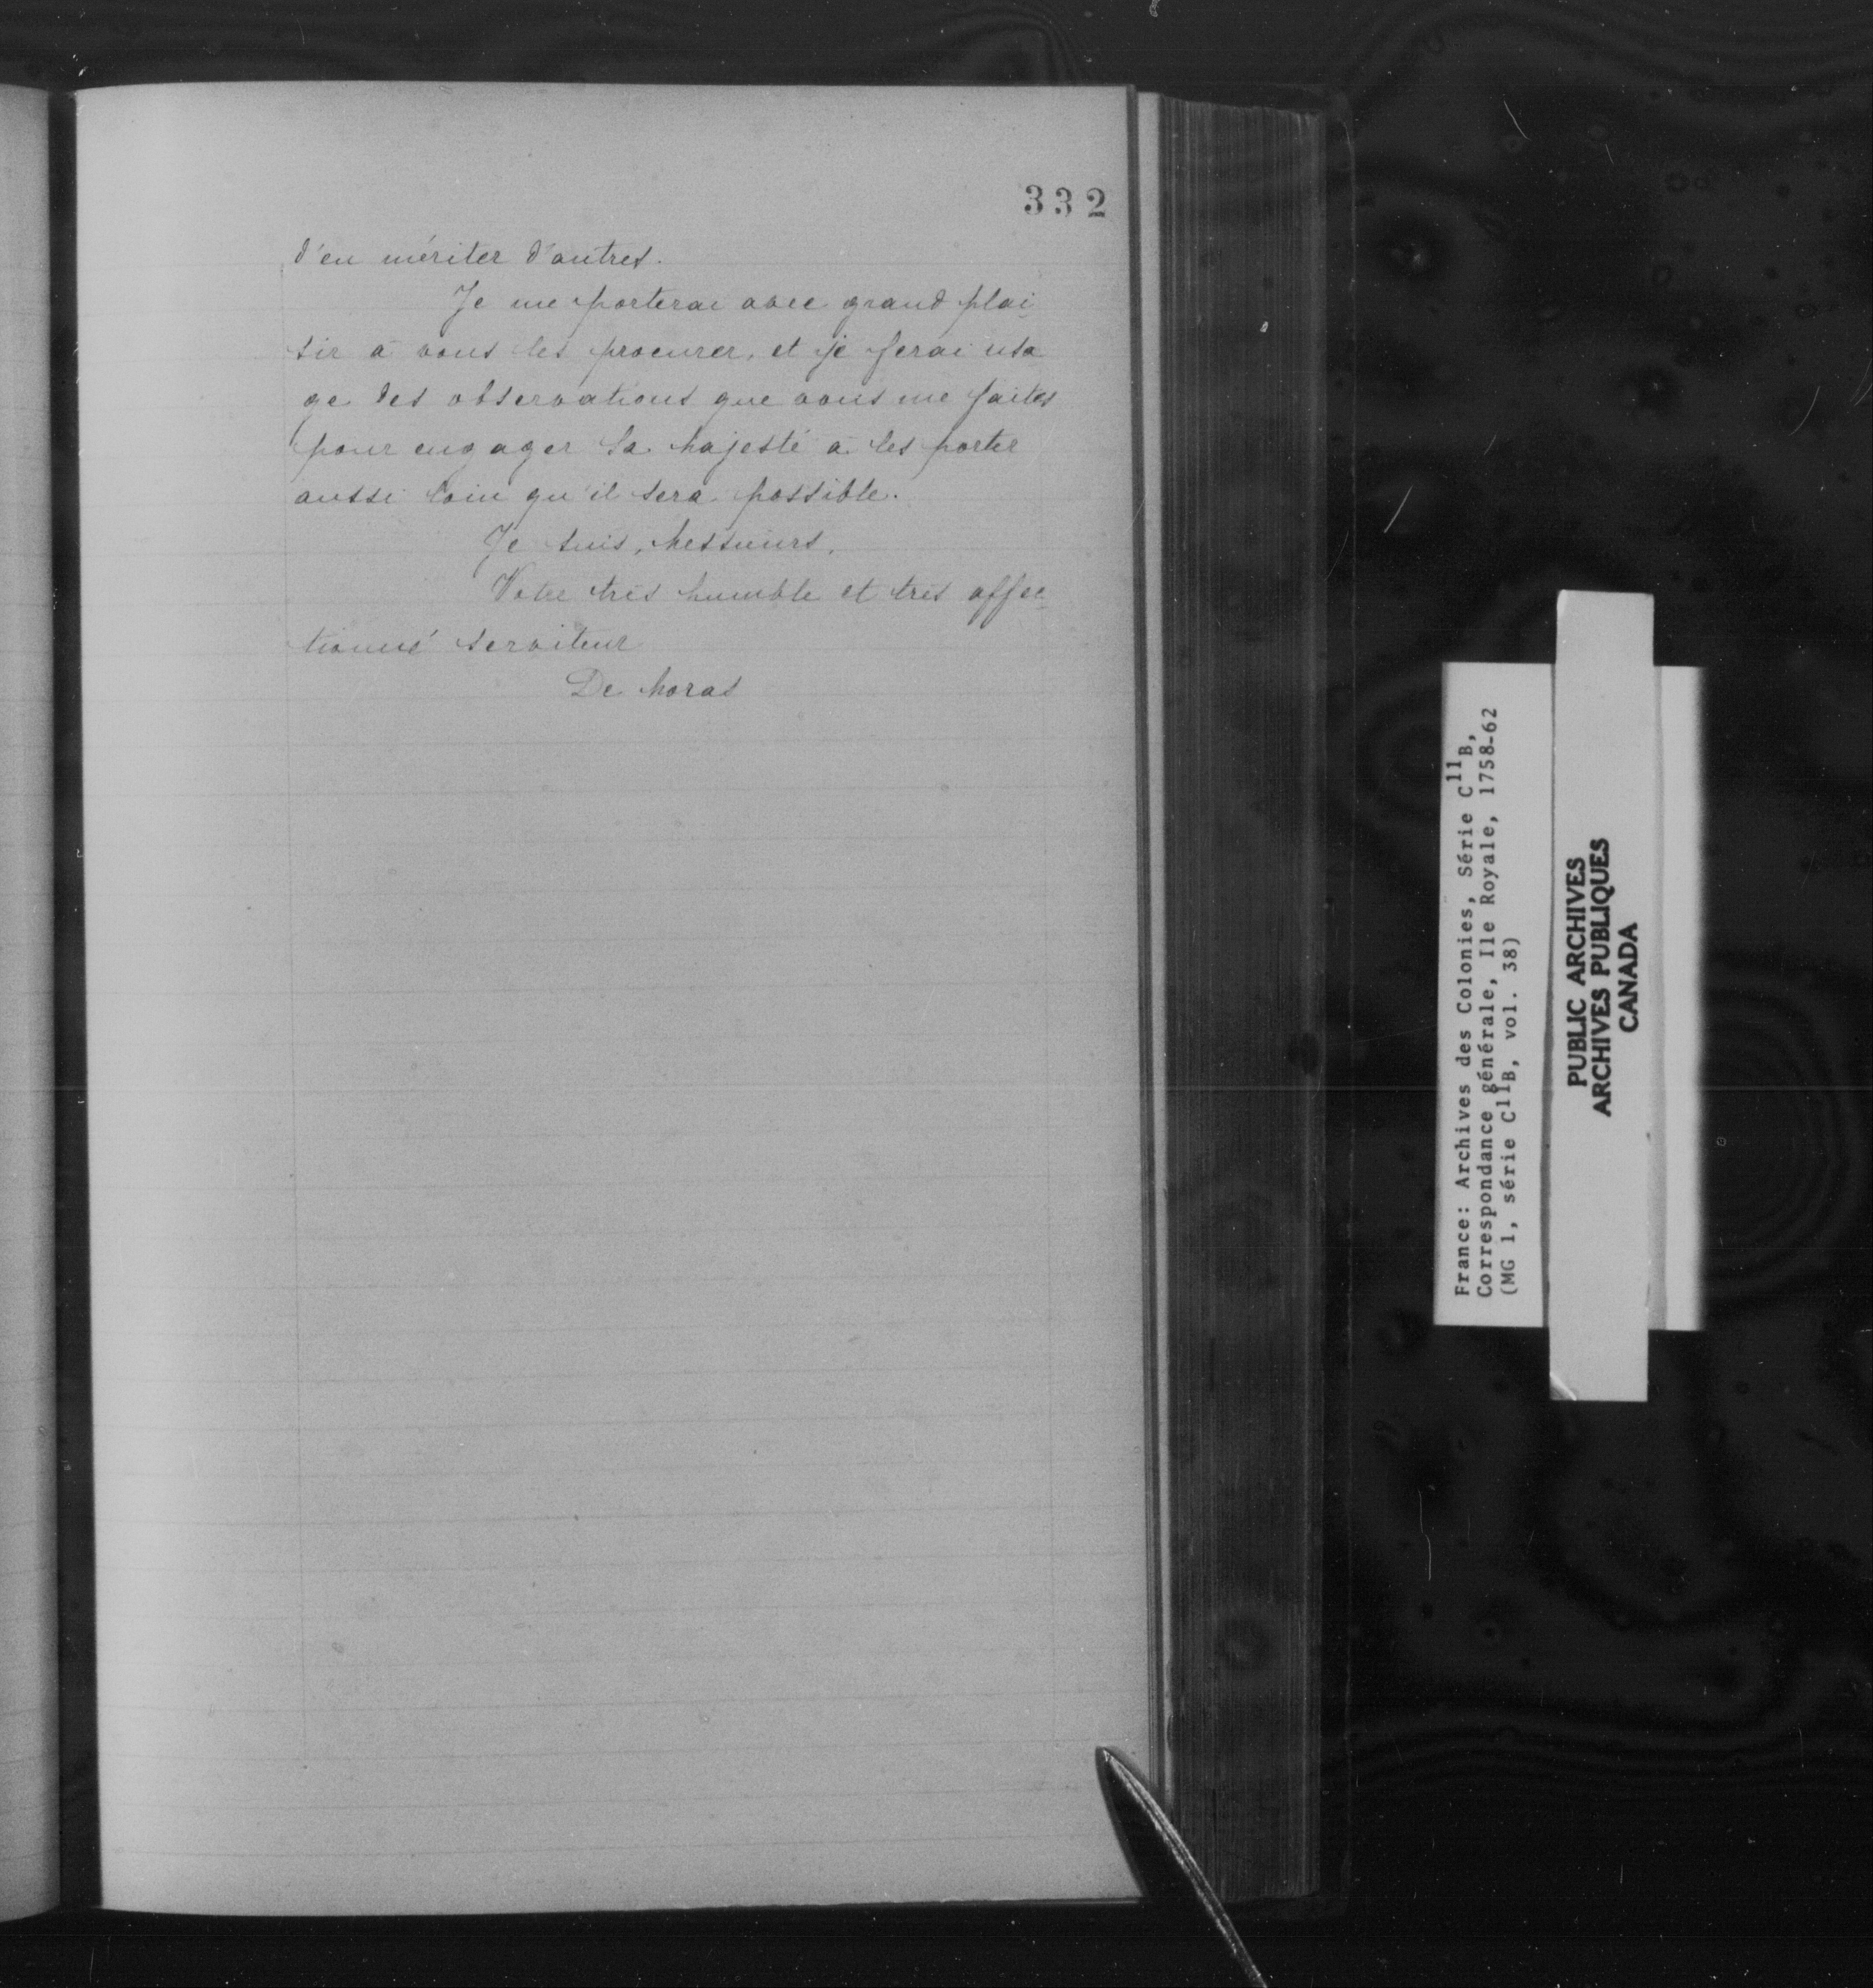 332
d'en mériter d'autres.
Je me porterai avec grand plai
sir à vous les procurer, et je ferai usa
ge des observations que vous me faites
pour engager Sa Majesté à les porter
aussi loin qu'il sera possible.
Je suis, Messieurs,
Votre très humble et très affec
tionné serviteur
De Moras
France: Archives des Colonies, Série C11B,
Correspondance générale, Ile Royale, 1758-62
(MG 1, série C11B, vol. 38)
PUBLIC ARCHIVES
ARCHIVES PUBLIQUES
CANADA